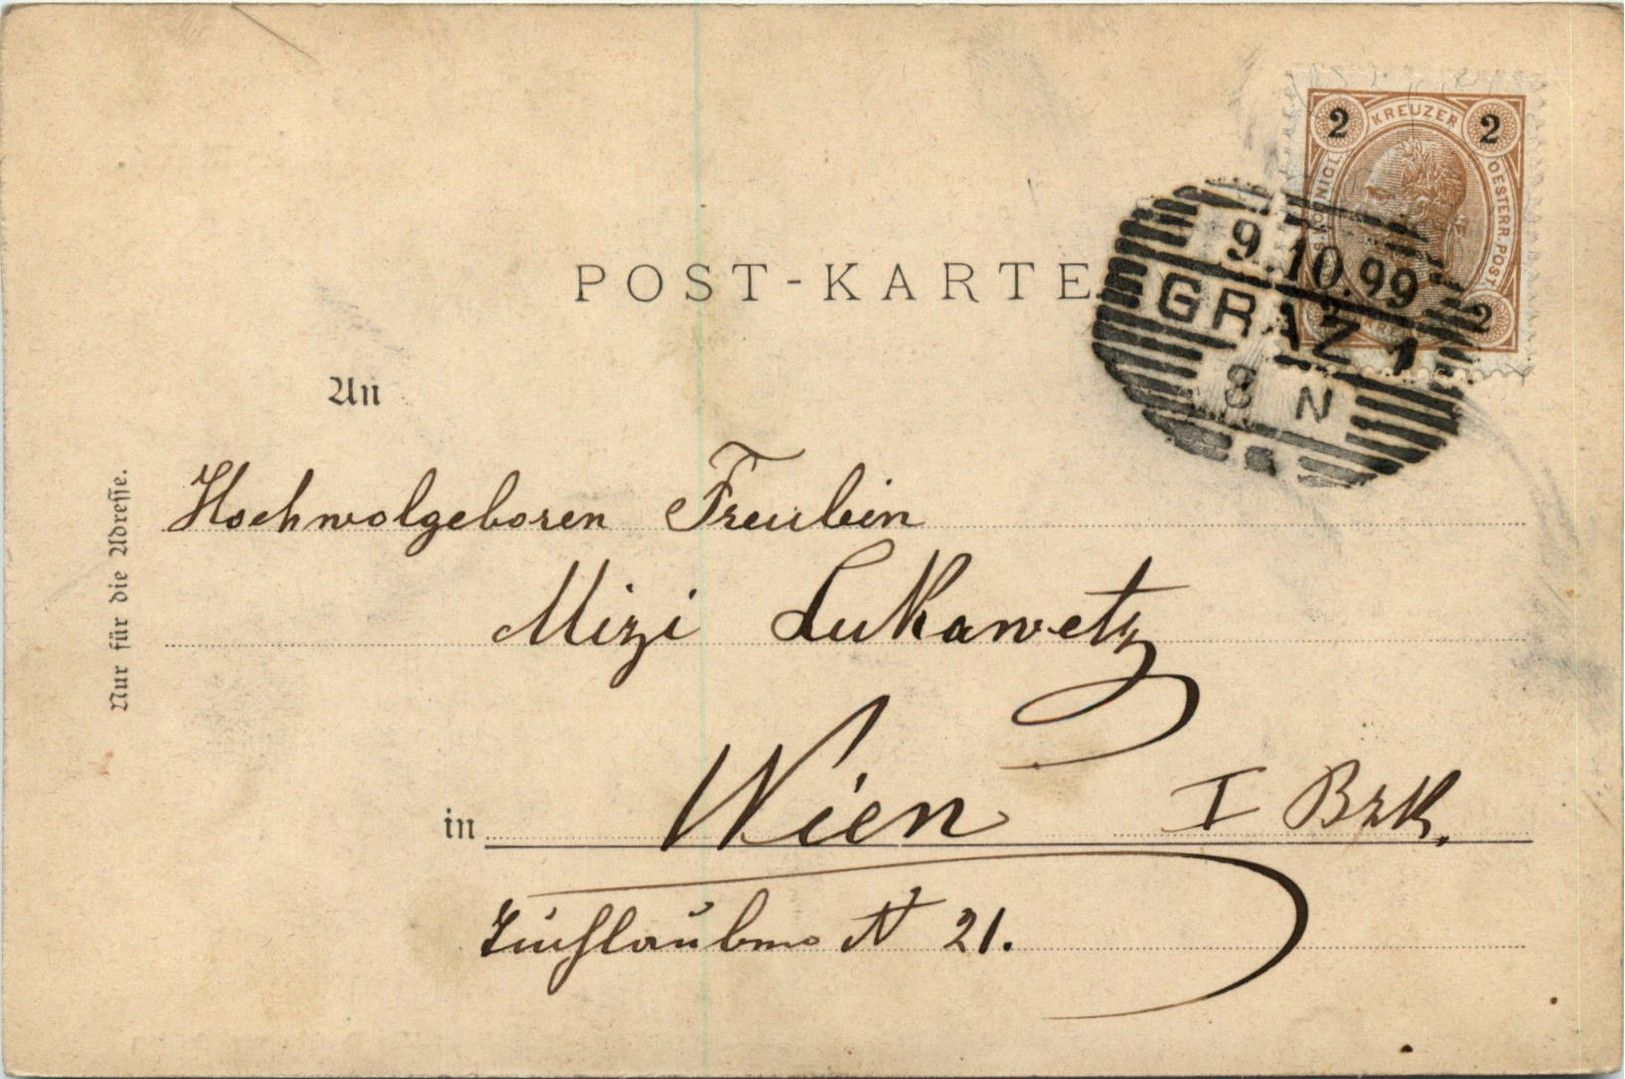 POST-KARTE
2 KREUZER 2
OESTERR. POST
2
9.10.99
GRAZ 1
8 N
An
Hochwolgeboren Freulein
Mizi Lukawetz
in Wien I Bzk.
Tuchlauben N 21.
Nur für die Adresse.